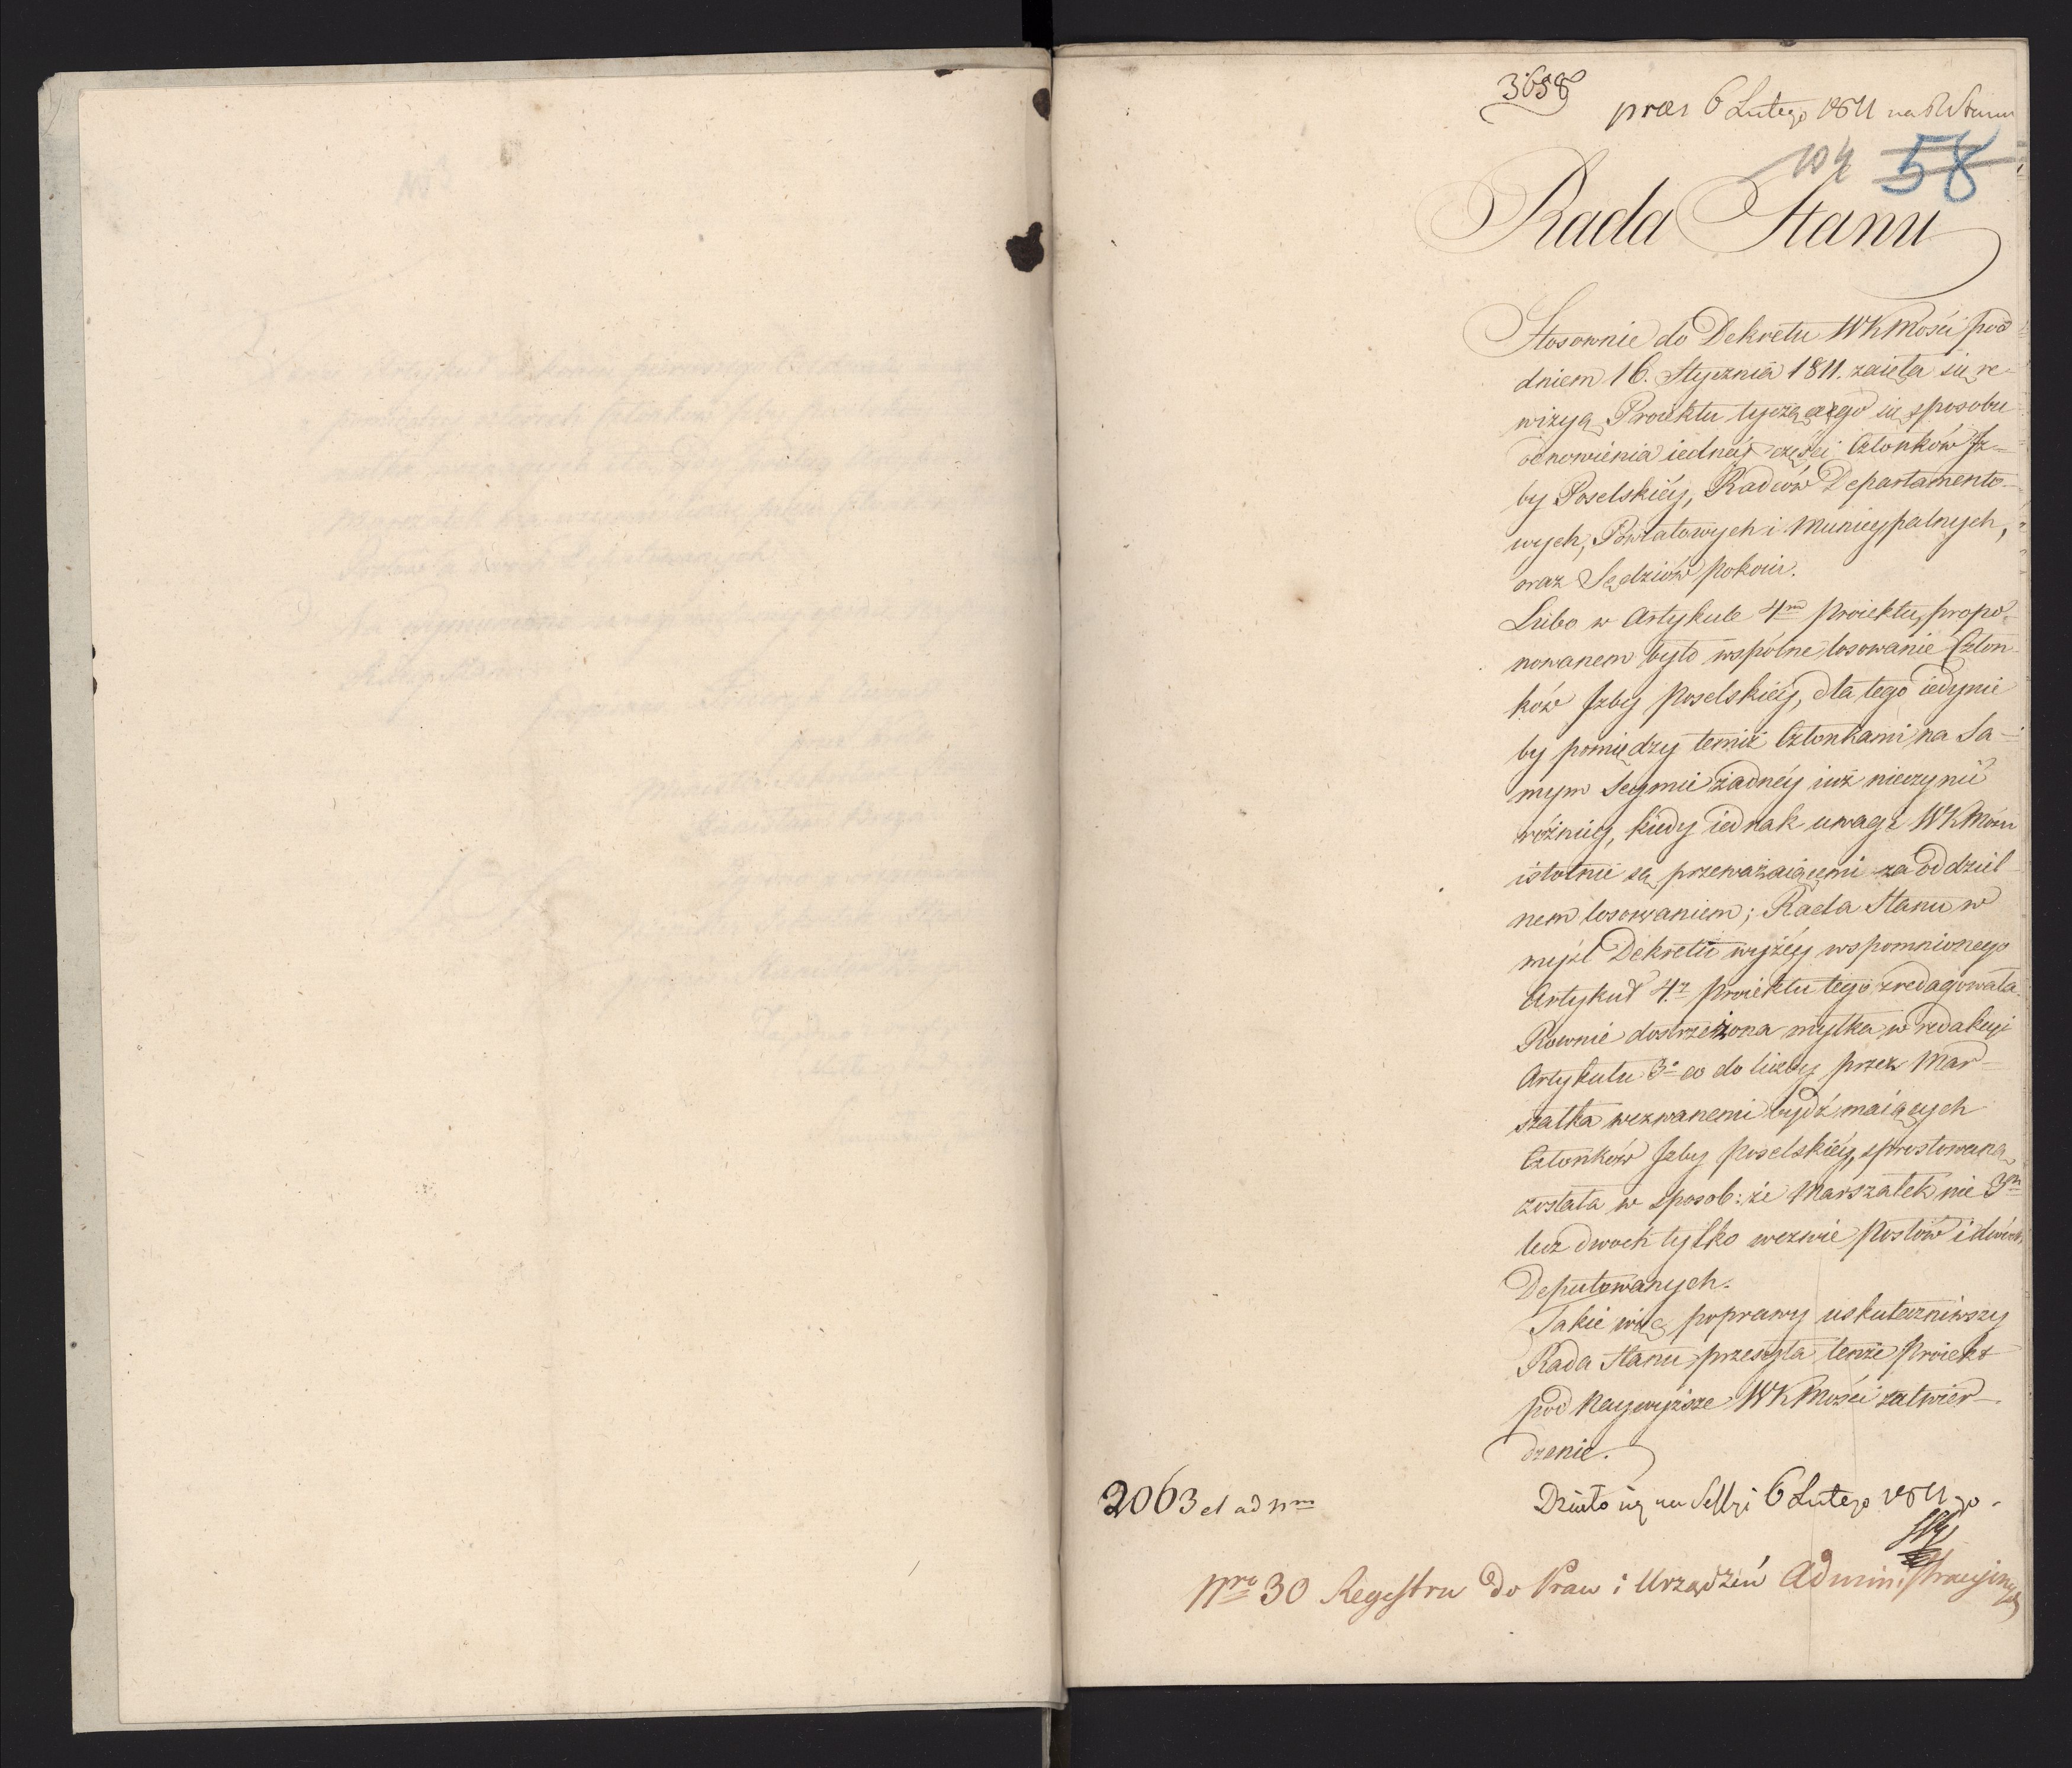 3658
præs 6 Lutego 1811 na R Stanu
104 58
Rada Stanu
Stosownie do Dekretu WKMości pod
dniem 16. Stycznia 1811. zaięła się re-
wizyą Proiektu tyczącego się sposobu
odnowienia iednéy części Członków Iz-
by Poselskiéy, Radców Departamento-
wych, Powiatowych i Municypalnych,
oraz Sędziów Pokoiu.
Lubo w Artykule 4m Proiektu, propo-
nowanem było wspólne losowanie Człon-
ków Izby Poselskiéy, dla tego iedynie
by pomiędzy temiż Członkami na Sa-
mym Seymie żadnéy iuż nieczynić
różnicy, kiedy iednak uwagi WKMości
istotnie są przeważaiącemi za oddziel-
nem losowaniem; Rada Stanu w
myśl Dekretu wyżéy wspomnionego
Artykuł 4r Proiektu tego zredagowała.
Rownie dostrzeżona myłka w redakcyi
Artykułu 3o co do liczby przez Mar-
szałka wezwanemi bydź maiących
Członków Izby Poselskiéy, sprostowaną
została w sposob: że Marszałek nie 3ch
lecz dwóch tylko wezwie Posłów i dwóch
Deputowanych.
Takie więc poprawy uskuteczniwszy
Rada Stanu przesyła tenże Proiekt
pod Naywyższe WKMości zatwier-
dzenie.
2063 et ad nm
Działo się na Sessyi 6 Lutego 1811 go.
Nro 30 Regestru do Praw i Urządzeń Administracyinych